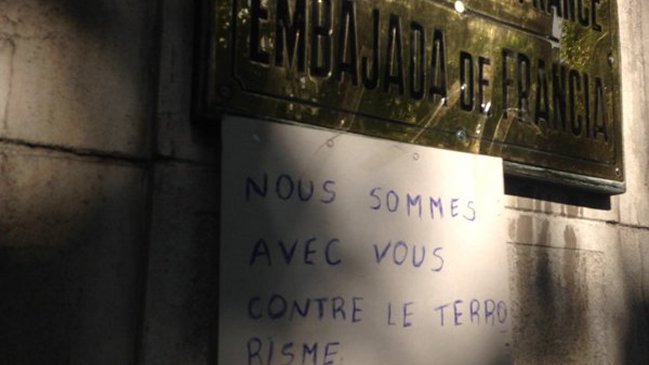 FRANCE
EMBAJADA DE FRANCIA
NOUS SOMMES
AVEC VOUS
CONTRE LE TERRO
RISME